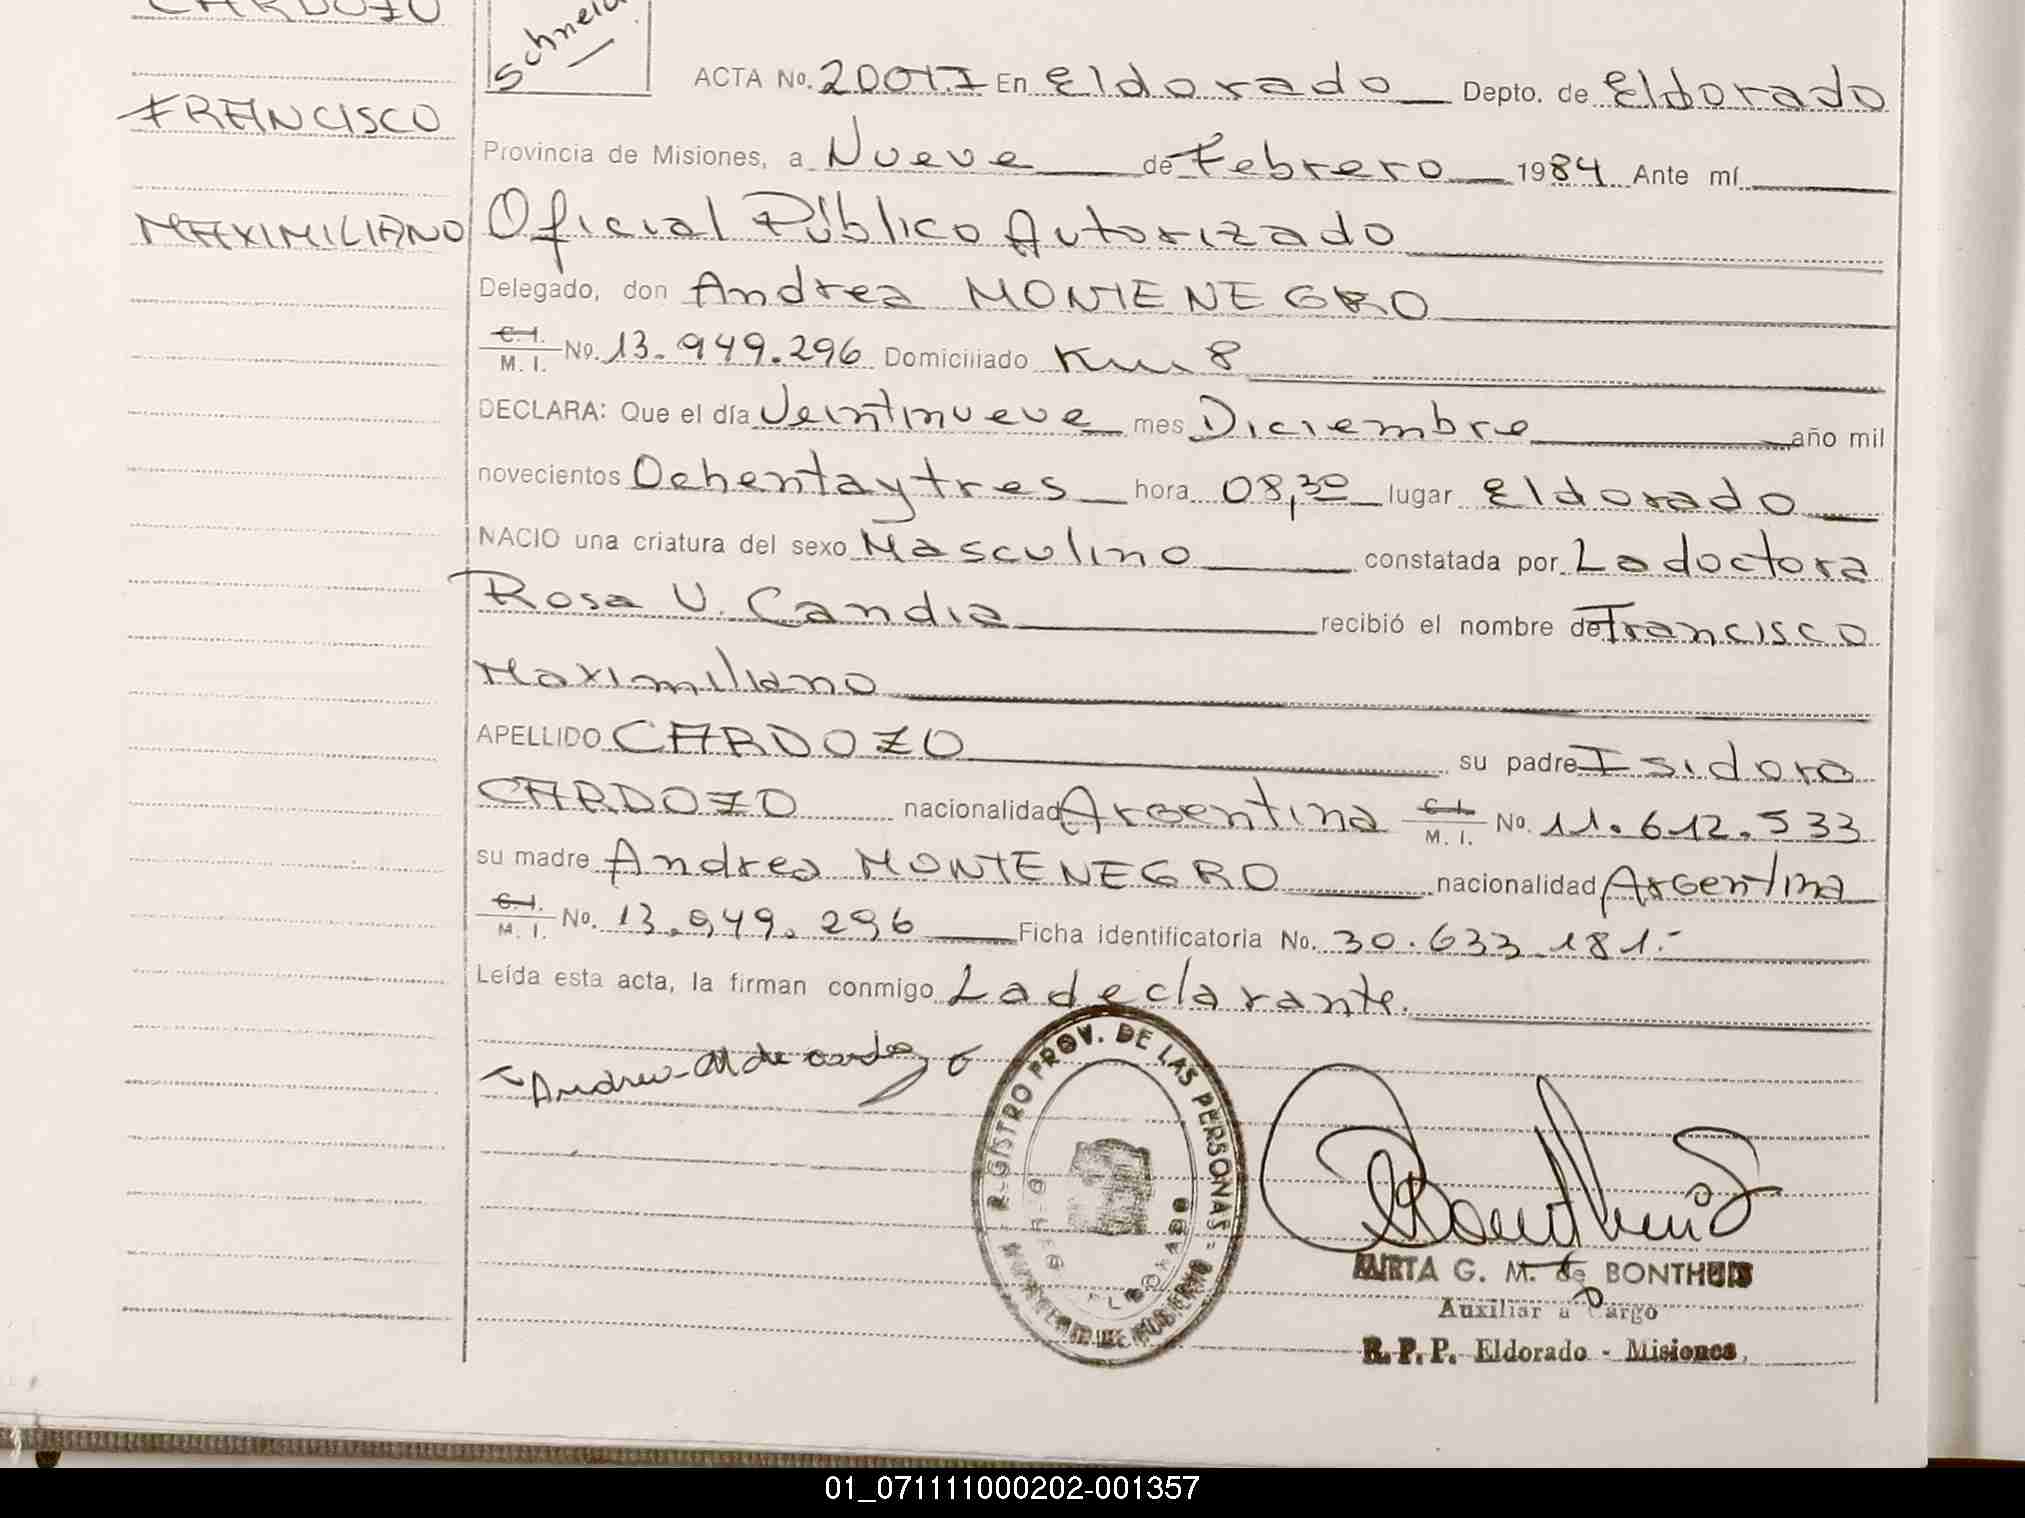 CARDOZO
FRANCISCO
MAXIMILIANO
ACTA No. 200 T.I En Eldorado Depto. de Eldorado
Provincia de Misiones, a Nueve de Febrero 1984 Ante mí
Oficial Público Autorizado
Delegado, don Andrea MONTENEGRO
C. I.
M. I. No. 13.949.296 Domiciliado Km 8
DECLARA: Que el día Veintinueve mes Diciembre año mil
novecientos Ochenta y tres hora 08,30 lugar Eldorado
NACIO una criatura del sexo Masculino constatada por La doctora
Rosa V. Candia recibió el nombre de Francisco
Maximiliano
APELLIDO CARDOZO su padre Isidoro
CARDOZO nacionalidad Argentina C. I.
M. I. No. 11.612.533
su madre Andrea MONTENEGRO nacionalidad Argentina
C. I.
M. I. No. 13.949.296 Ficha identificatoria No. 30.633.181.-
Leída esta acta, la firman conmigo La declarante.
Andrea M de cardozo
REGISTRO PROV. DE LAS PERSONAS
MINISTERIO DE GOBIERNO
MIRTA G. M. de BONTHUIS
Auxiliar a Cargo
R. P. P. Eldorado - Misiones
01_071111000202-001357